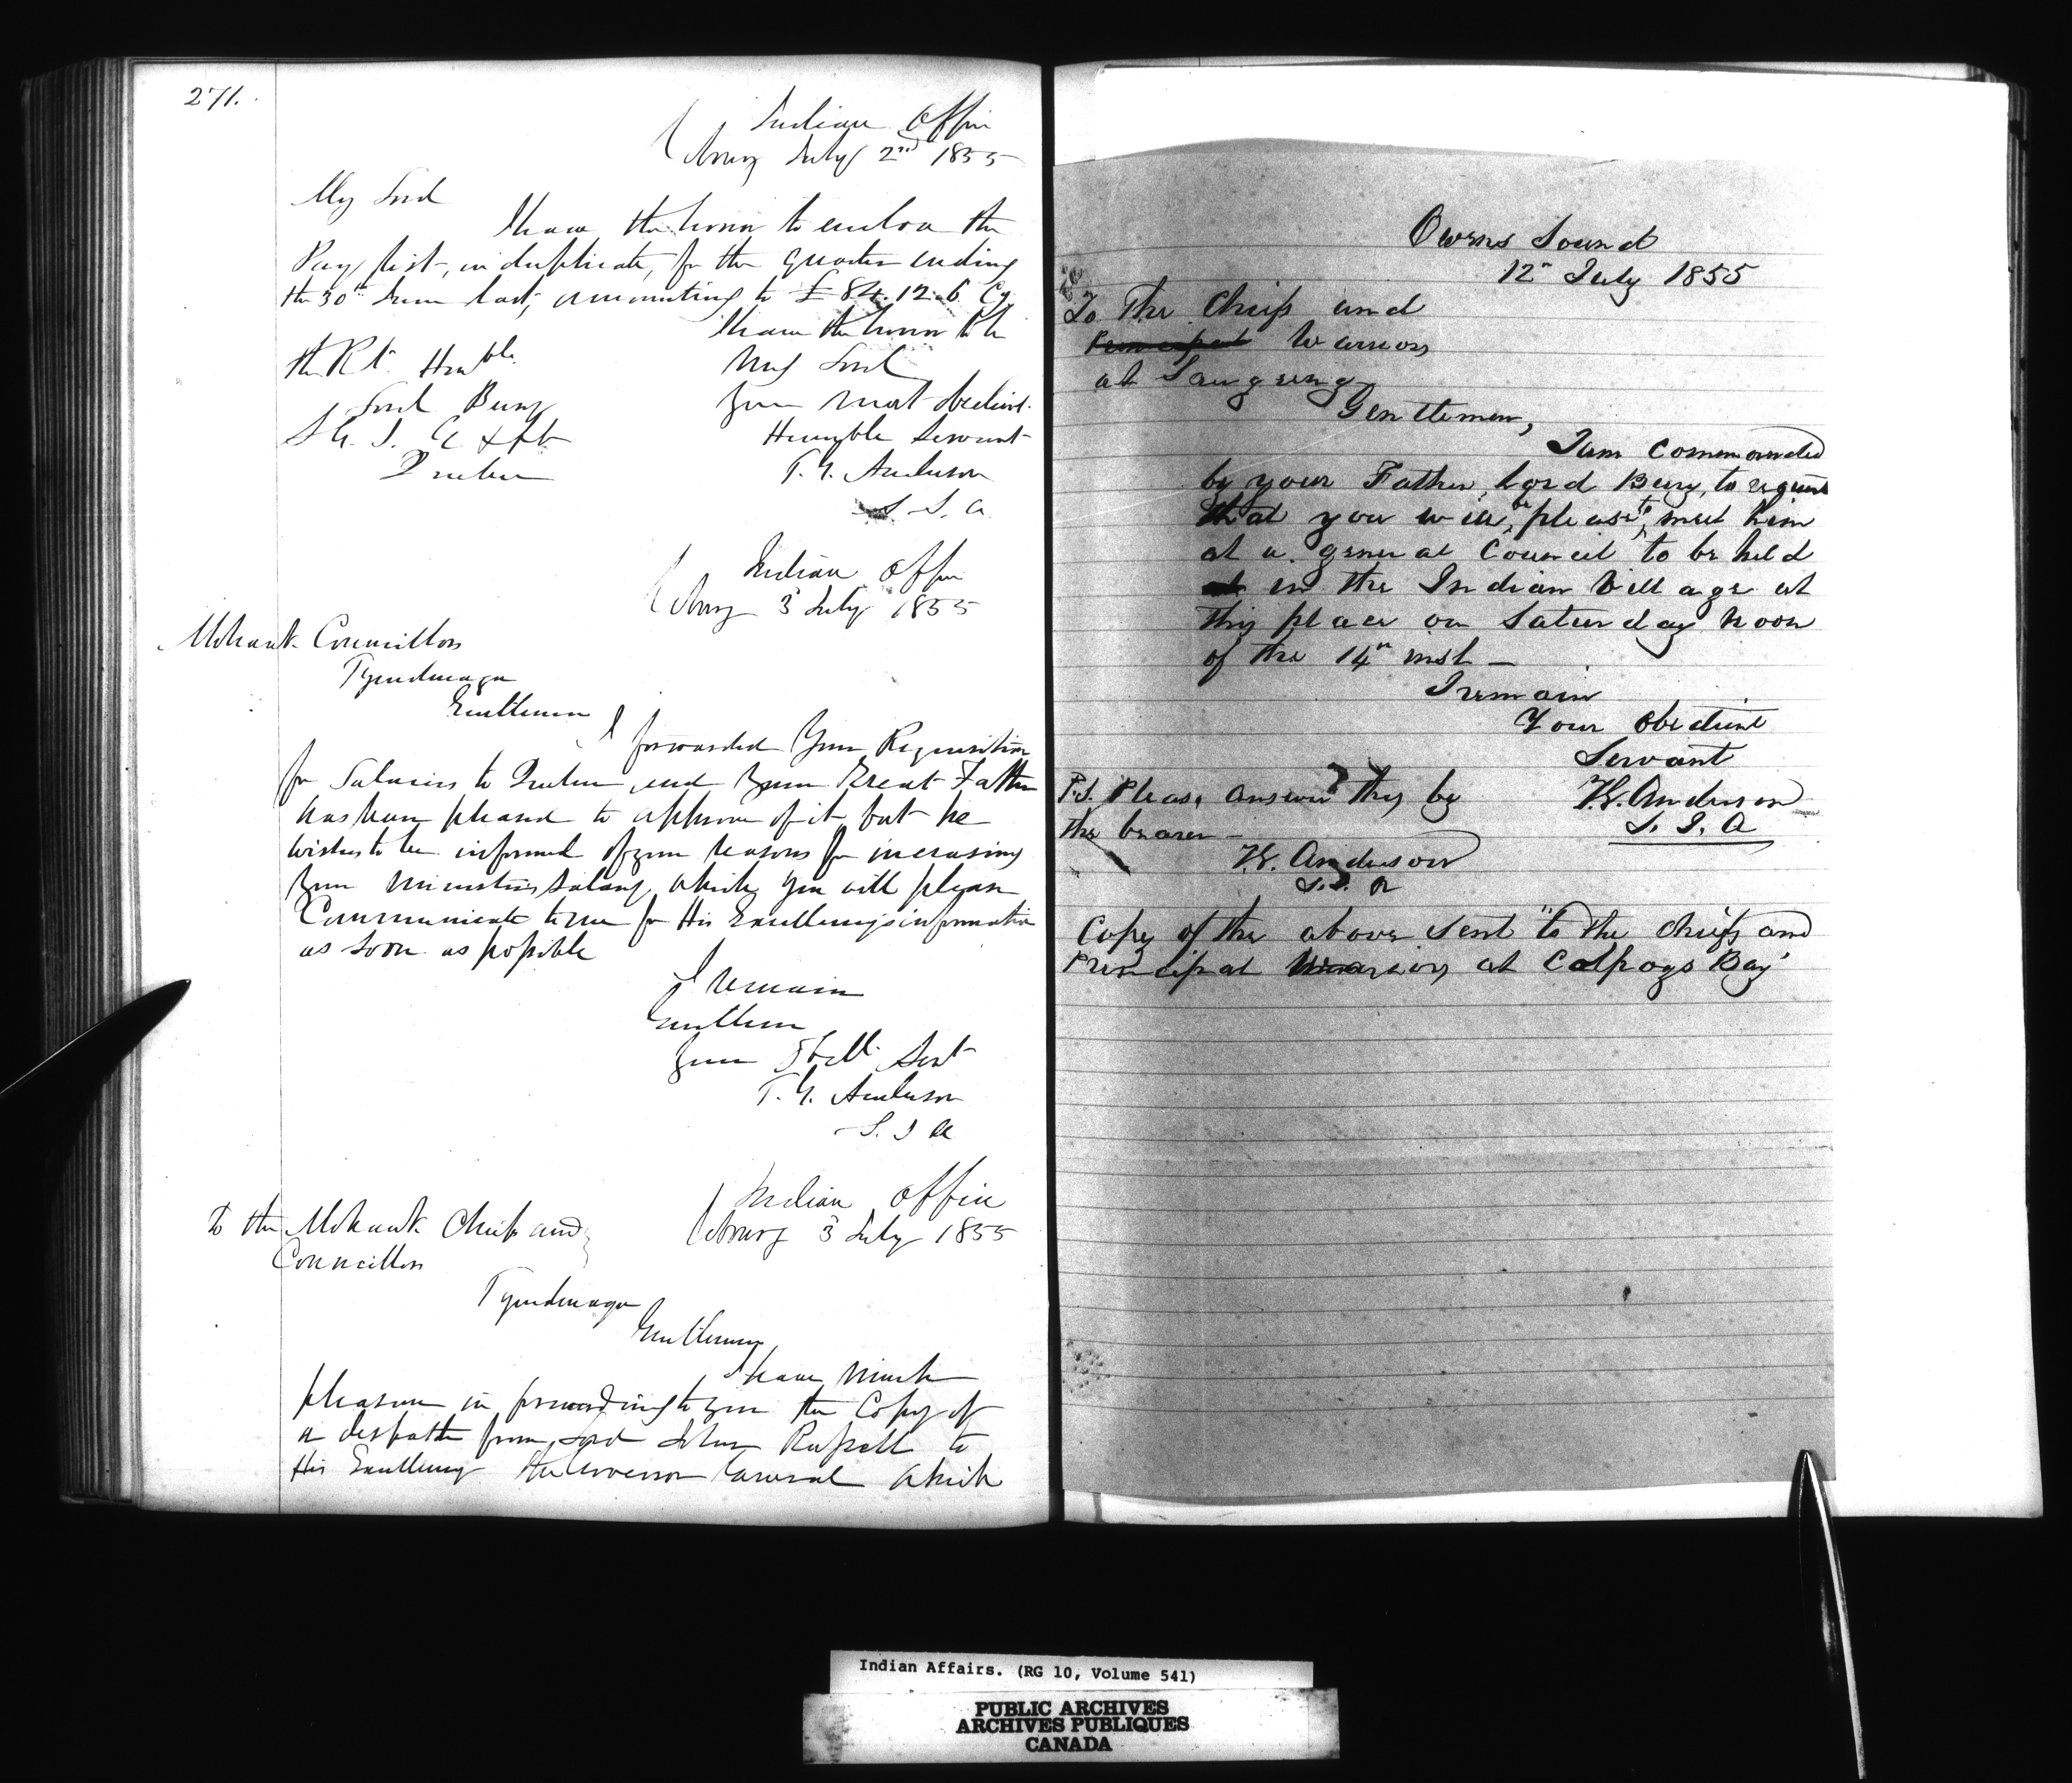 271.
Indian Office
Cobourg July 2nd 1855
My Lord
I have the honor to enclose the
Pay list, in duplicate, for the quarter ending
the 30th June last, amounting to £84.12.6 Cy
I have the honor to be
The Rt. Honble.
My Lord
Lord Bury
Your most obedient
S. G. I. A &c &c
Humble Servant
Quebec
T. G. Anderson
S. I. A.
Indian Office
Cobourg 3 July 1855
Mohawk Councillors
Tyendinaga
Gentlemen
I forwarded Your Requisition
for Salaries to Quebec and Your Great Father
has been pleased to approve of it but he
wishes to be informed of your reasons for increasing
Your Ministers Salary, which you will please
Communicate to me for His Excellency's information
as soon as possible
I remain
Gentlemen
Your Obedt. Servt
T. G. Anderson
S. I A
Indian Office
Cobourg 3 July 1855
To the Mohawk Chiefs and
Councillors
Tyendinaga
Gentlemen,
I have much
pleasure in forwarding to you the Copy of
a despatch from Lord John Russell to
His Excellency the Governor General which
Owens Sound
12th July 1855
To The Chiefs and
Principal Warriors
at Saugeeng
Gentlemen,
I am Commanded
by your Father, Lord Bury, to request
that you will be please to meet him
at a general Council to be held
at in the Indian Village at
this place on Saturday noon
of the 14th inst -
I remain
Your Obedient
Servant
P.S. Please answer this by
T.G. Anderson
the bearer -
S. I. A
T.G. Anderson
S.I. A
Copy of the above sent to the Chiefs and
Principal Warriors at Colpoys Bay
Indian Affairs. (RG 10, Volume 541)
PUBLIC ARCHIVES
ARCHIVES PUBLIQUES
CANADA